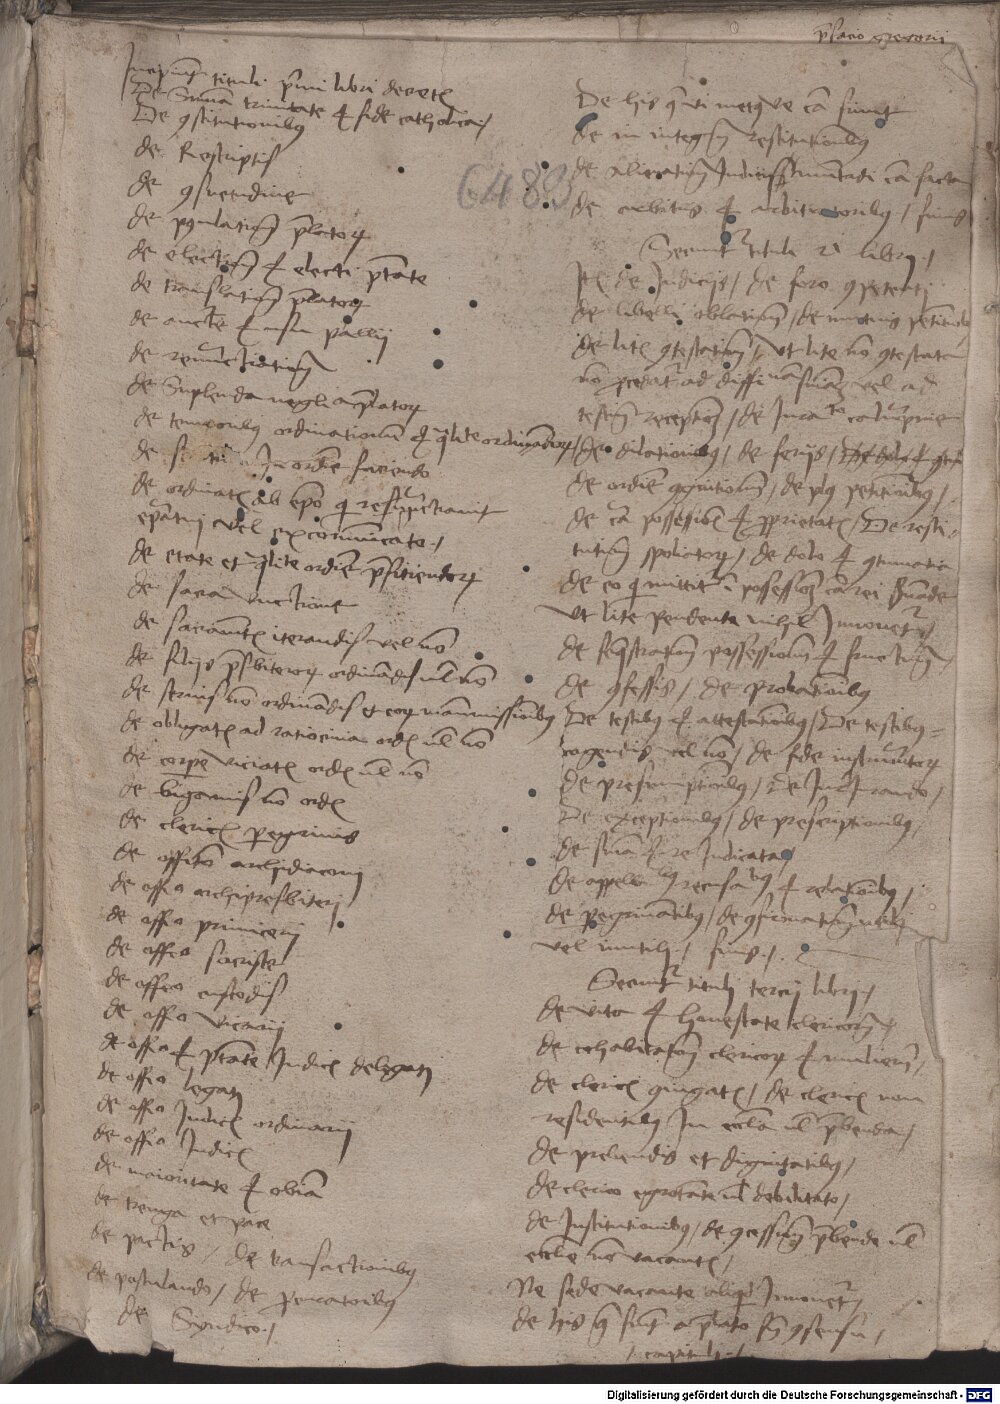 Incipiunt tituli primi libri decretalium
De Summa trinitate et fide catholica /
De constitutionibus
de Rescriptis
de consuetudine
de postulatione prelatorum
de electione et electi potestate
de translatione prelatorum
de auctoritate et usu pallii
de renunctiatione
de Suplenda negligentia prelatorum
de temporibus ordinationum et qualitate ordinandorum /
de scrutinio In ordine faciendo
de ordinatis ab episcopo qui resignavit
episcopatui vel excommunicato /
de etate et qualitate ordine preficiendorum
de sacra unctione
de sacramentis iterandis vel non
de filiis presbiterorum ordinandis vel non
de servis non ordinandis et eorum manumissionibus
de obligatis ad ratiocinia ord vel non
de corpore viciatis ord vel non
de bigamis non ord
de clericis peregrinis
de officio archidiaconi
de officio archipresbiteri
de officio primicerii
de officio sacriste
de officio custodis
de officio vicarii
de officio et potestate Iudicis delegati
de officio legati
de officio Iudicis ordinarii
de officio Iudicis
de maioritate et obedientia
de treuga et pace
de pactis / de transactionibus
de postulando / de procuratoribus
de Syndico /
prefacio gregorii
6488
De hiis que vi metusve causa fiunt
de in integrum restitutionibus
de alienatione Iudicii mutandi causa facta
de arbitris et arbitratoribus / finis
Secuntur tituli 2i libri /
de Iudiciis / de foro competenti
de libelli oblatione / de mutuis petitionibus
de litis contestatione / Ut lite non contestata
non procedatur ad diffinitivam sententiam vel ad
testium receptionem / de Iuramento calumpnie
De dilationibus / de feriis /
de ordine cognitionum / de plus petitionibus /
de causa possessionis et proprietatis / De resti-
tutione spoliatorum / de dolo et contumacia
de eo qui mittitur in possessionem causa rei servande
Ut lite pendente nihil Innovetur /
de sequestratione possessionum et fructuum /
de confessis / de probationibus
De testibus et attestationibus / De testibus
cogendis vel non / de fide instrumentorum
de presumptionibus / De Iure Iurando /
De exceptionibus / de prescriptionibus /
de sententia et re Iudicata /
de appellationibus recusationibus et relationibus /
de peregrinantibus / de confirmatione utili
vel inutili / finis /
Secuntur tituli tercii libri /
de vita et honestate clericorum /
de cohabitatione clericorum et mulierum /
de clericis coniugatis / de clericis non
residentibus In ecclesia vel prebenda /
de prebendis et dignitatibus /
de clerico egrotante vel debilitato /
de Institutionibus / de concessione prebende vel
ecclesie non vacantis /
Ne sede vacante aliquid Innovetur /
de hiis que fiunt a prelato sine consensu /
capituli /
Digitalisierung gefördert durch die Deutsche Forschungsgemeinschaft - DFG